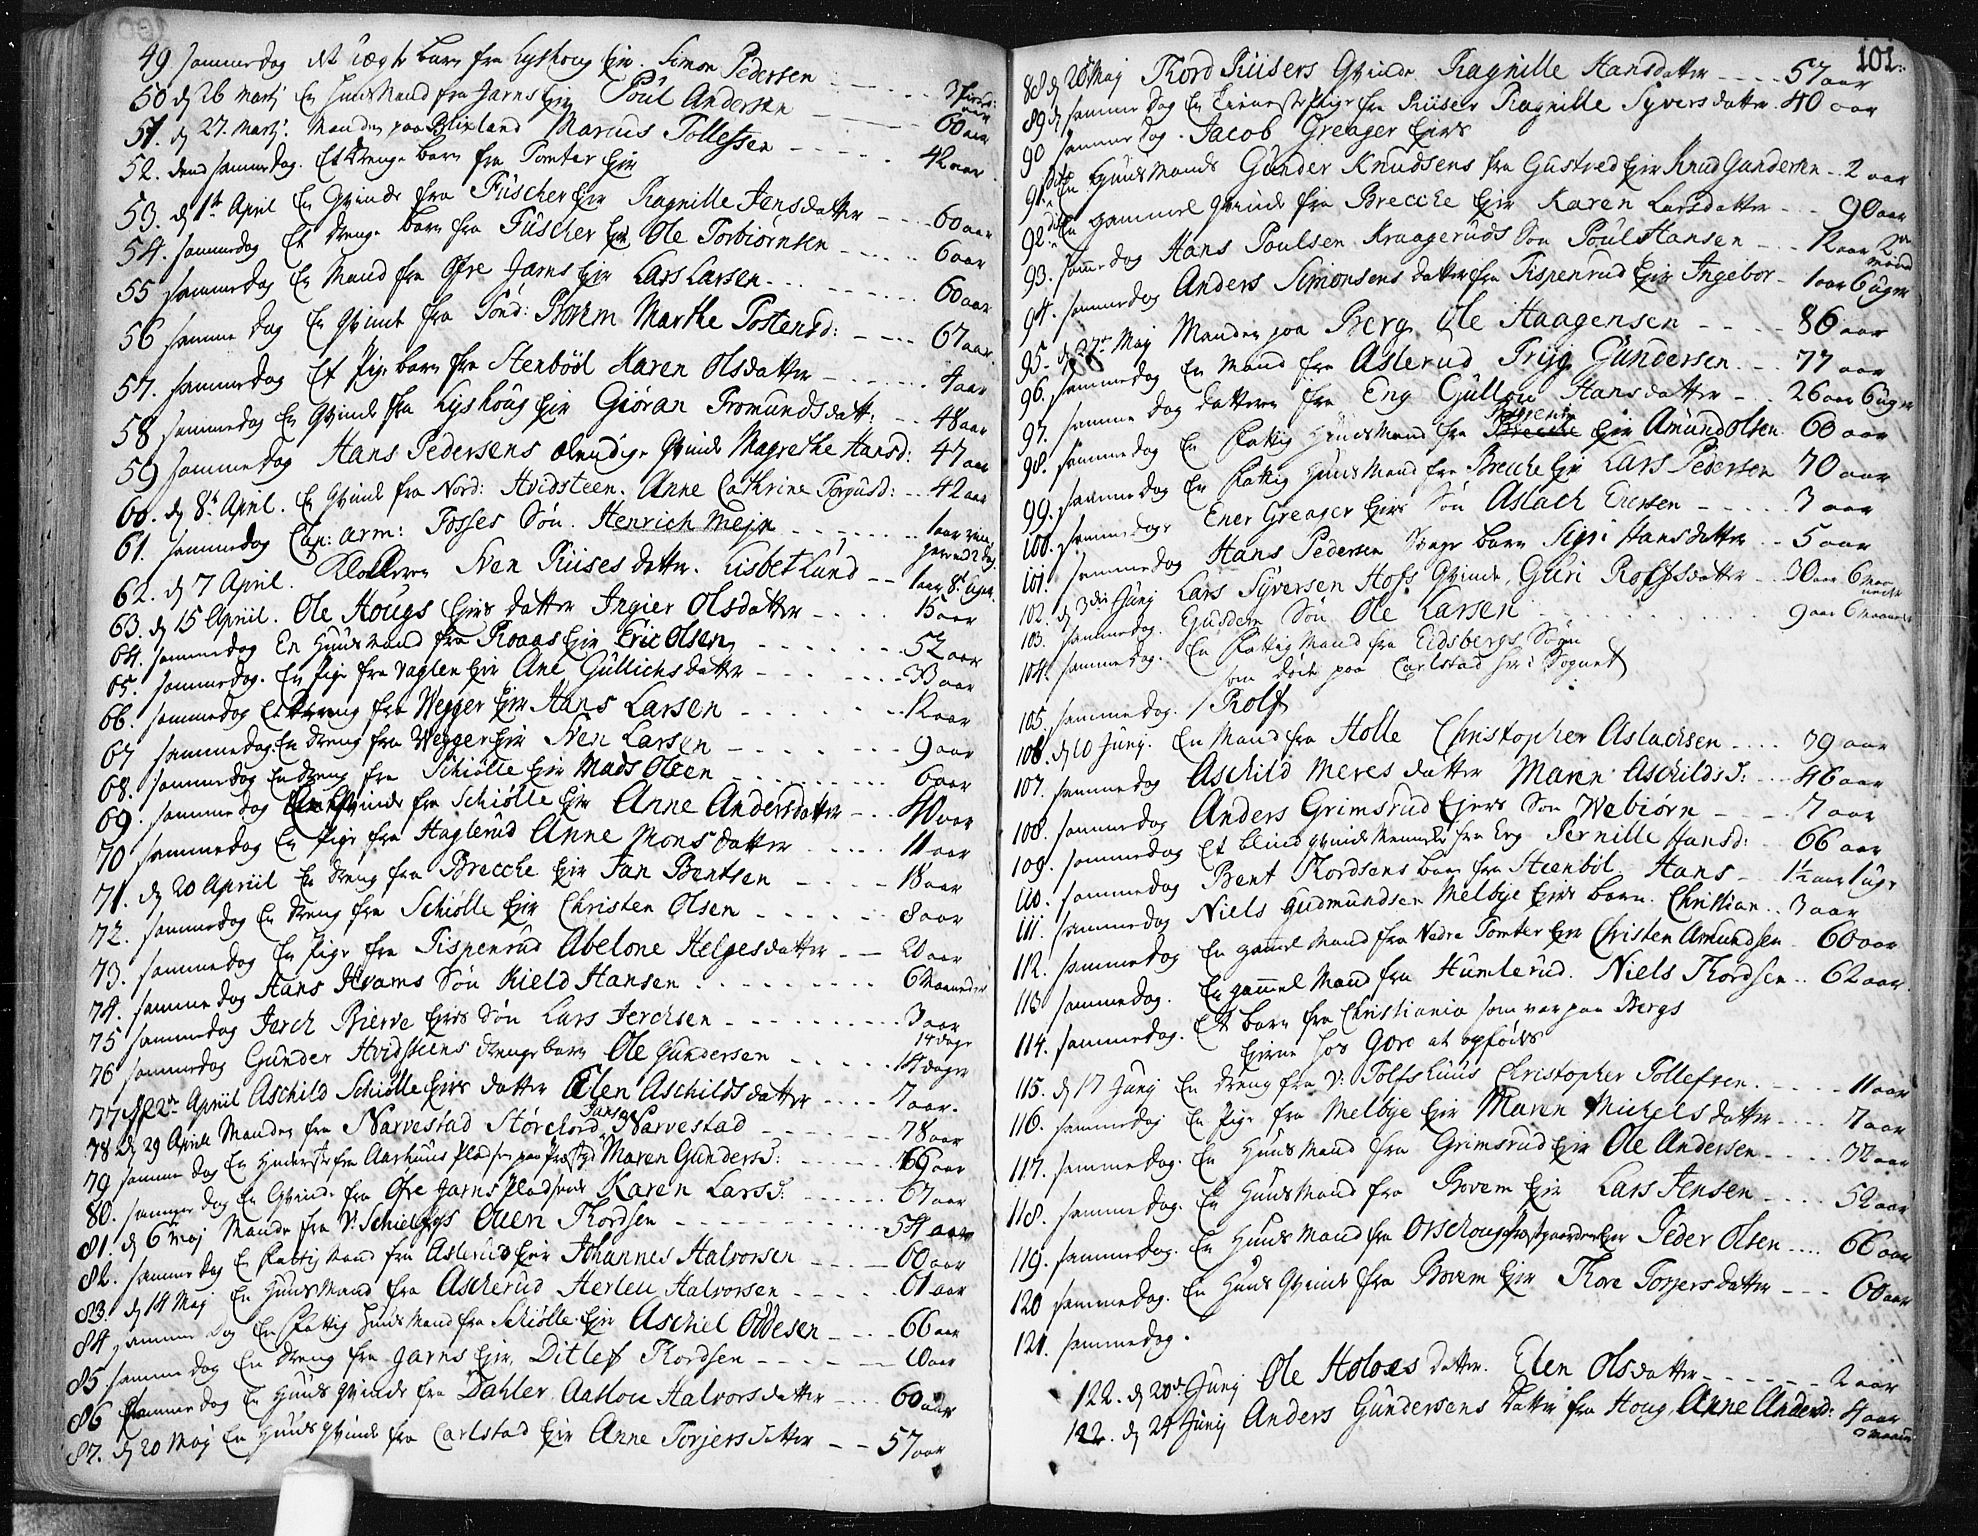 49. sammedag et Uægte barn fra Lyshoug Eje. Simon Pedersen
50 d 26 Martj En Huusmand fra Jarns Eje Poul Andersen - 60 aar
51. d 27. Martj. Manden paa Blixland Marcus Tollefsen - 42 aar
52. dend samme dag. Et drenge barn fra Tomter Eje
53. d 1te April En Qvinde fra Füscher Eje Ragnille Jensdatter - 60 aar
54. sammedag Et drenge barn fra Füscher Eje Ole Torbiørnsen - 6 aar
55 sammedag En Mand fra Øfre Jarns Eje Lars Larsen - 60 aar
56 samme dag En Qvinde fra Sönd: Bovem Marthe Tostensd: - 67 aar.
57. sammedag Et Pige barn fra Stenböl Karen Olsdatter - 4 aar
58 sammedag En Qvinde fra Lyshoug Eje Giöran Tromundsdatt: - 48 aar
59 sammedag Hans Pedersens Qvinde Magrethe Hansd: 47 aar
60. d 8te April. En Qvinde fra Nord: Hvidsteen. Anne Cathrine Torgusd: - 42 aar
61. sammedag Cap: arm: Fosses Sön. Henrich Mejn - 1 aar
62. d 7 April. Klokkeren Sven Riises datter. Lisbet Lund - 1 aar 8 Uger.
63. d 15 April. Ole Hougs Ejers datter Ingier Olsdatter - 15 aar
64. sammedag En Huusmand fra Roaas Eje Eric Olsen - 52 aar
65. sammedag. En Pige fra Vagten Eje Ane Gullichsdatter - 33 aar
66. sammedag Et dreng fra Wegger Eje Hans Larsen - 12 aar
67 sammedag En dreng fra Wegger Eje Sven Larsen - 9 aar
68. sammedag En dreng fra Schiølle Eje Mads Olsen - 6 aar
69. sammedag En Qvinde fra Schiølle Eje Anne Andersdatter - 40 aar
70 sammedag En Pige fra Haglerud Anne Monsdatter - 11 aar
71. d 20 Apriil En dreng fra Brecche Eje Jan Bentsen - 18 aar
72. sammedag En dreng fra Schiølle Eje Christen Olsen - 8 aar
73. sammedag En Pige fra Tispenrud Abelone Helgesdatter - 20 aar
74. samme dag Hans Hvams Sön Kield Hansen - 6 Maaneder
75 sammedag Jerch Bierve Ejers Sön Lars Jerchsen - 3 aar 14 dage
76 sammedag Gunder Hvidsteens drenge barn Ole Gundersen - 14 dager
77 d 22de April Aschild Schiølle Ejers datter Elen Aschildsdatter - 7 aar.
78 d 29 April Manden fra Narvestad Störchord Jansen Narvestad - 78 aar
79 samme dag En fra Aarhuus Pladsen paa Præstgd Maren Gundersd: - 66 aar
80. samme dag En Qvinde fra Øvre Jarns Pladsende Karen Larsd: - 67 aar
81. d 6te Maj Manden fra V: Schielfys Even Thordsen - 54 aar
82. samme dag En Fattig Mand fra Aslerud Eje Johannes Halvorsen - 60 aar
83. d 14 Maj En Huusmand fra Ascherud Herleu Halvorsen - 61 aar
84 samme dag En Fattig Huusmand fra Schiølle Eje Aschiel Oddesen - 66 aar
85 samme dag En dreng fra Jarns Eje. Ditlef Thordsen - 10 aar
86 samme dag En Huus Qvinde fra Dahler Aaslou Halvorsdatter - 60 aar
87. d 20 Maj En Huus Qvinde fra Carlstad Eje Anne Torjersdatter - 57 aar
101.
88 d 20 Maj Thord Riisers Qvinde Ragnille Hansdatter - 57 aar
89 d samme dag En Tieneste Pige fra Riiser Ragnille Syversdatter. 40 aar
90 samme dag. Jacob Greager Ejers
91. dito En Huusmands Gunder Knudsens fra Gustved Eje Knud Gundersen - 2 aar
92. dito En gammel Qvinde fra Brecche Eje Karen Larsdatter - 90 aar
93. samme dag Hans Poulsen Kraageruds Sön Poul Hansen - 12 aar
94. sammedag Anders Simonsens datter fra Tispenrud Eje Ingebor - 1 aar 6 uger
95. d 27de Maj Manden paa Berg. Ole Haagensen - 86 aar
96. sammedag En Mand fra Aslerud Trÿg Gundersen. - 77 aar
97. samme dag datteren fra Eng Gullou Hansdatter - 26 aar 6 uger
98. sammedag En Fattig Huusmand fra Brecche Eje Amund Olsen. 60 aar
99. sammedag En Fattig Huusmand fra Brecche Eje Lars Pedersen 70 aar
100. sammedag Ener Greager Ejers Sön Aslach Enersen - 3 aar
101. sammedag Hans Pedersen barn Sigri Hansdatter - 5 aar
102. d 3die Junj Lars Syversen Hofs Qvinde, Guri Rolfsdatter - 30 aar 6 Maaneder
103. sammedag. Ejusdem Sön Ole Larsen - 9 aar 6 Maaneder
104. sammedag. En Fattig Mand fra Eidsbergs Sogn
som döde paa Carlstad her i Sognet
105. sammedag. / Rolf
106. d 10 Junj. En Mand fra Holle Christopher Aslachsen - 79 aar
107. sammedag Aschild Meres datter Maren Aschildsd: - 46 aar
108. sammedag Anders Grimsrud Ejers Sön Webiørn - 7 aar
109. sammedag Et blind Qvinde Menneske fra Eng Pernille Hansd: 66 aar
110. sammedag Bent Thordsens barn fra Steenböl Hans - 1½ aar 1 uge
111. sammedag Niels Gudmundsen Melbye Ejers barn. Christian - 3 aar
112. sammedag En gamel Mand fra Nedre Tomter Eje Christen Amundsen - 60 aar
113 sammedag. En gammel Mand fra Humlerud. Niels Thordsen - 62 aar
114. sammedag. Et barn fra Christiania som var paa Bergs
Eierne hos Gore at opfödes
115. d 17 Junj En dreng fra V: Tolfshuus Christopher Tollefsen. - 11 aar
116. sammedag En Pige fra Melbye Eje Maren Michelsdatter - 7 aar
117. sammedag. En Huusmand fra Grimsrud Eje Ole Andersen - 32 aar
118. sammedag. En Huusmand fra Bovem Eje Lars Jensen - 52 aar
119. sammedag. En Huusmand fra Orschoug Præstgaardens Eje Peder Olsen - 66 aar
120 sammedag. En Huus Qvinde fra Bovem Eje Thore Torjersdatter - 60 aar
121. sammedag.
122. d 20de Junj Ole Holoes datter. Elen Olsdatter - 2 aar
122. d 24 Junij Anders Gundersens datter fra Houg, Anne Andersd: 4 aar